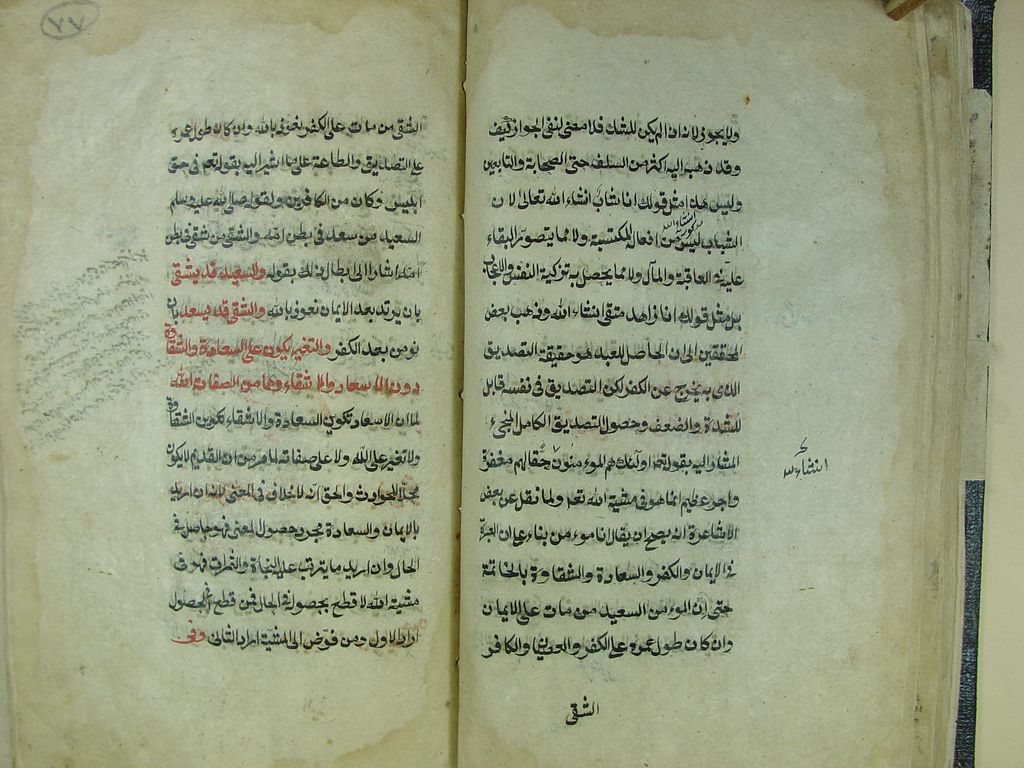 ولا يجوز لانه ان لم يكن للشك فلا معنى لنفى الجواز كيف
وقد ذهب اليه كثر من السلف حتى الصحابة والتابعين
وليس هذا مثل قولك انا شاب انشاء الله تعالى لان
انشاء الله
الشباب ليس من افعال المكتسبة ولا مما يتصور البقاء
عليه فى العاقبة والمآل ولا مما يحصل به تزكية النفس والاعجاب
بل مثل قولك انا زاهد متقى انشاء الله وذهب بعض
المحققين الى ان الحاصل للعبد هو حقيقة التصديق
الذى به يخرج عن الكفر لكن التصديق فى نفسه قابل
للشدة والضعف وحصول التصديق الكامل المنجى
المشار اليه بقوله تعم اولئك هم الموءمنون حقا لهم مغفرة
واجر عظيم انما هو فى مشية الله تعم ولما نقل عن بعض
الاشاعرة انه يصح ان يقال انا موءمن بناء على ان العبرة
فى الايمان والكفر والسعادة والشقاوة بالخاتمة
حتى ان الموءمن السعيد من مات على الايمان
وان كان طول عمره على الكفر والعصيان والكافر
الشقى
انشاء الله
٧٧
الشقى من مات على الكفر نعوذ بالله وان كان طول عمره
على التصديق والطاعة على ما اشير اليه بقوله تعم فى حق
ابليس وكان من الكافرين ولقوله صلى الله عليه وسلم
السعيد من سعد فى بطن امه والشقى من شقى فى بطن
امه اشار الى ابطال ذلك بقوله والسعيد قد يشقى
بان يرتد بعد الايمان نعوذ بالله والشقى قد يسعد بان
يومن بعد الكفر والتغير يكون على السعادة والشقاوة
دون الاسعاد والاشقاء وهما من الصفات الله
لما ان الاسعاد تكوين السعادة والاشقاء تكوين الشقاوة
ولا تغير على الله ولا على صفاته لما مر من ان القديم لا يكون
محلا للحوادث والحق انه لا خلاف فى المعنى لانه ان اريد
بالايمان والسعادة مجرد حصول المعنى فهو حاصل فى
الحال وان اريد ما يترتب عليه النجاة والثمرات فهو فى
مشية الله لا قطع بحصوله فى الحال فمن قطع الحصول
اراد الاول ومن فوض الى المشية اراد الثانى وفى